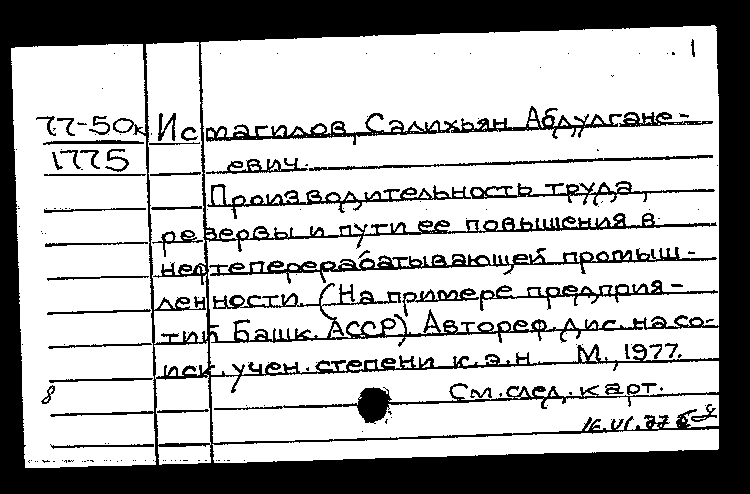 1
77-50к Исмагилов, Салихьян Абдулгане-
1775 евич.
Производительность труда,
резервы и пути ее повышения в
нефтеперерабатывающей промыш-
ленности. (На примере предприя-
тий Башк. АССР). Автореф. дис. на со-
иск. учен. степени к.э.н М., 1977.
8 См. след. карт.
16.VI.77